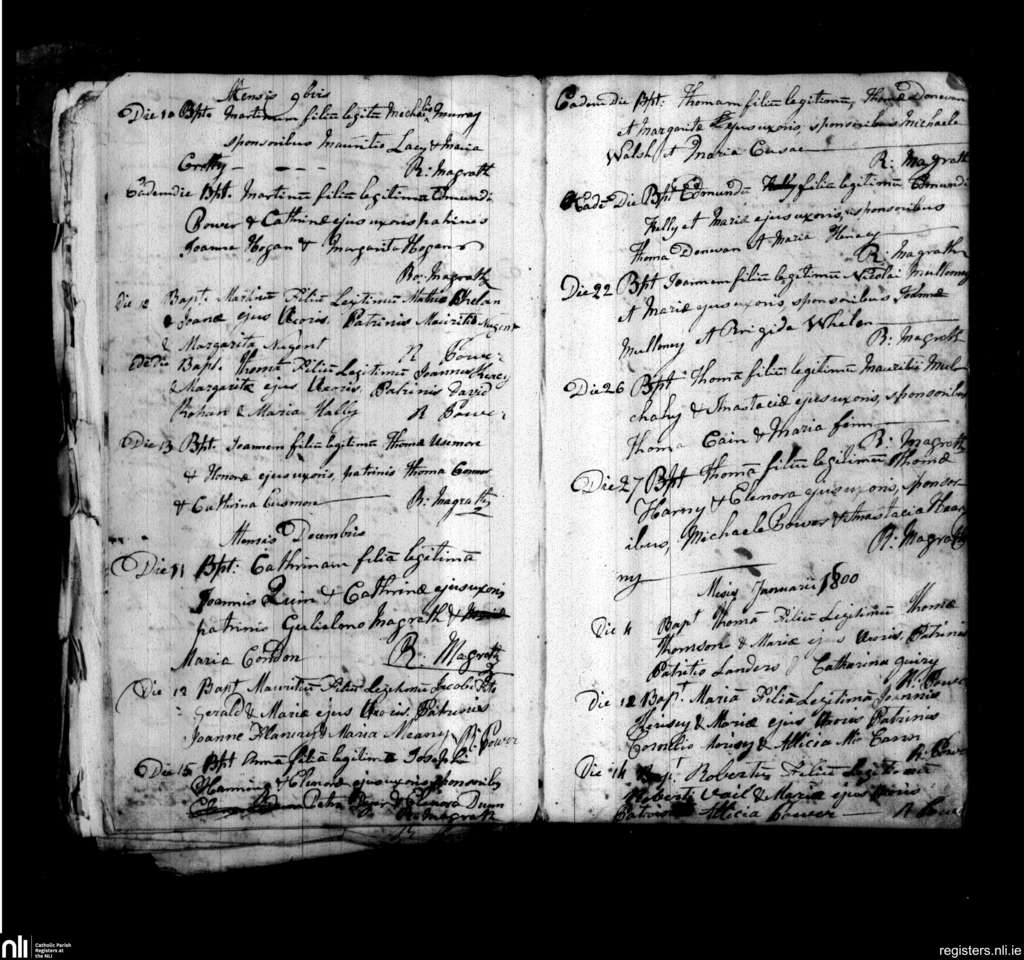 Mensis 9bris
Die 10 Bpt. Martinum filiū legitim Michalis Murray
sponsoribus Mauritio Lacy & Maria
R: Magrath
Eademdie Bpt. Martinum filiū legitimū Edmundi
Power & Cathrinæ ejus uxoris patrinis
Joanne Hogan & Margarita Hogan
Ro: Magrath
Die 12 Bapt. Martinū Filiū Legitimum Phelan
& Joanæ ejus Uxoris. Patrinis Mauritio Nugent
& Margarita Nugent R Power
Bapt. Thomā Filiū Legitimum Joannis
& Margaritæ ejus Uxoris. Patrinis David
Rohan & Maria Hally R Power
Die 13 Bpt. Joannem filiū legitimū Thomæ
& Honoræ ejus uxoris, patrinis Thoma Connor
& Cathrina R: Magrath
Mensis Decembris
Die 11 Bpt: Cathrinam filiā legitimā
Joannis Quin & Cathrinæ ejus uxoris
patrinis Gulielmo Magrath &
Maria Condon R. Magrath
Die 12 Bapt Mauritiū Filiū Legitimum Jacobi Fitz
Gerald & Mariæ ejus Uxoris. Patrinis
Joanne & Maria Meany R. Power
Die 15 Bpt Annā filiā legitimā Josephi
& Elenoræ ejus uxoris sponsoribs
Petro & Elenora Dunn
R: Magrath
Eadem Die Bpt: Thomam filiū legitimum, Thomæ Donewan
et Margaritæ ejus uxoris, sponsoribus Michaele
Walsh et Maria Cusac
R: Magrath
Eadē Die Bpt Edmundū filiū legitimū Edmundi
Kelly et Mariæ ejus uxoris, sponsoribus
Thoma Donwan et Maria Heneey
R: Magrath
Die 22 Bpt Joannem filiū legitimū Nicolai Mullowny
et Mariæ ejus uxoris, sponsoribus
Mullowny et Brigida Whelan
R: Magrath
Die 26 Bpt Thomā filiū legitimum Mauritii Mul
chahy & Anastaciæ ejus uxoris, sponsoribus
Thoma Cain & Maria finn
R: Magrath
Die 27 Bpt Thomā filiū legitimum Thomæ
Harny & Elenora ejus uxoris, sponsor
ibus, Michaele Power & Anastacia Haar
R: Magrath
ny
Mēsis Januarii 1800
Die 4 Bapt Thomā Filiū Legitimū Thomæ
Thomson & Mariæ ejus Uxoris. Patrinis
Patritio Landers & Catharina Quiry
R. Power
Die 12 Bapt. Mariā Filiā Legitimā Joannis
& Mariæ ejus Uxoris Patrinis
Cornelio & Allicia Mc Carra
R. Power
Die 14 Bapt. Robertū Filiū Legitimū
Roberti Vail & Mariæ ejus Uxoris
Allicia Power R Power
nli
Catholic Parish
Registers at
the NLI
registers.nli.ie